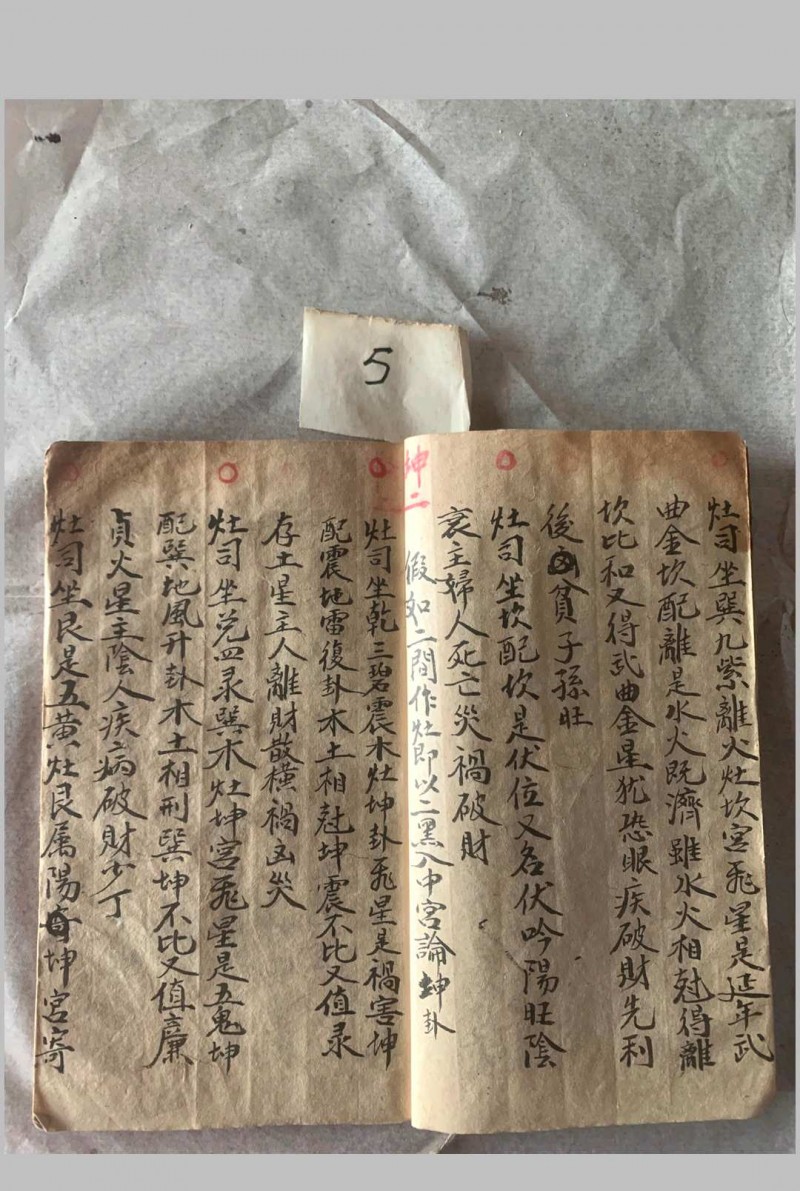 5
灶司坐巽九紫離火灶坎宮飛星是延年武
曲金坎配離是水火既濟雖水火相尅得離
坎比和又得武曲金星犹恐眼疾破財先利
後凶貧子孫旺
灶司坐坎配坎是伏位又名伏吟陽旺陰
衰主婦人死亡災禍破財
坤二
假如二間作灶即以二黑入中宮論坤卦
灶司坐乾三碧震木灶坤卦飛星是禍害坤
配震地雷復卦木土相尅坤震不比又值录
存土星主人離財散橫禍凶災
灶司坐兌四录巽木灶坤宮飛星是五鬼坤
配巽地風升卦木土相刑巽坤不比又值廉
貞火星主陰人疾病破財少丁
灶司坐艮是五黃灶艮屬陽奇坤宮寄